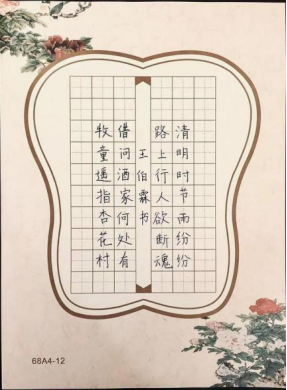 清明时节雨纷纷
路上行人欲断魂
王伯霖书
借问酒家何处有
牧童遥指杏花村
68A4-12